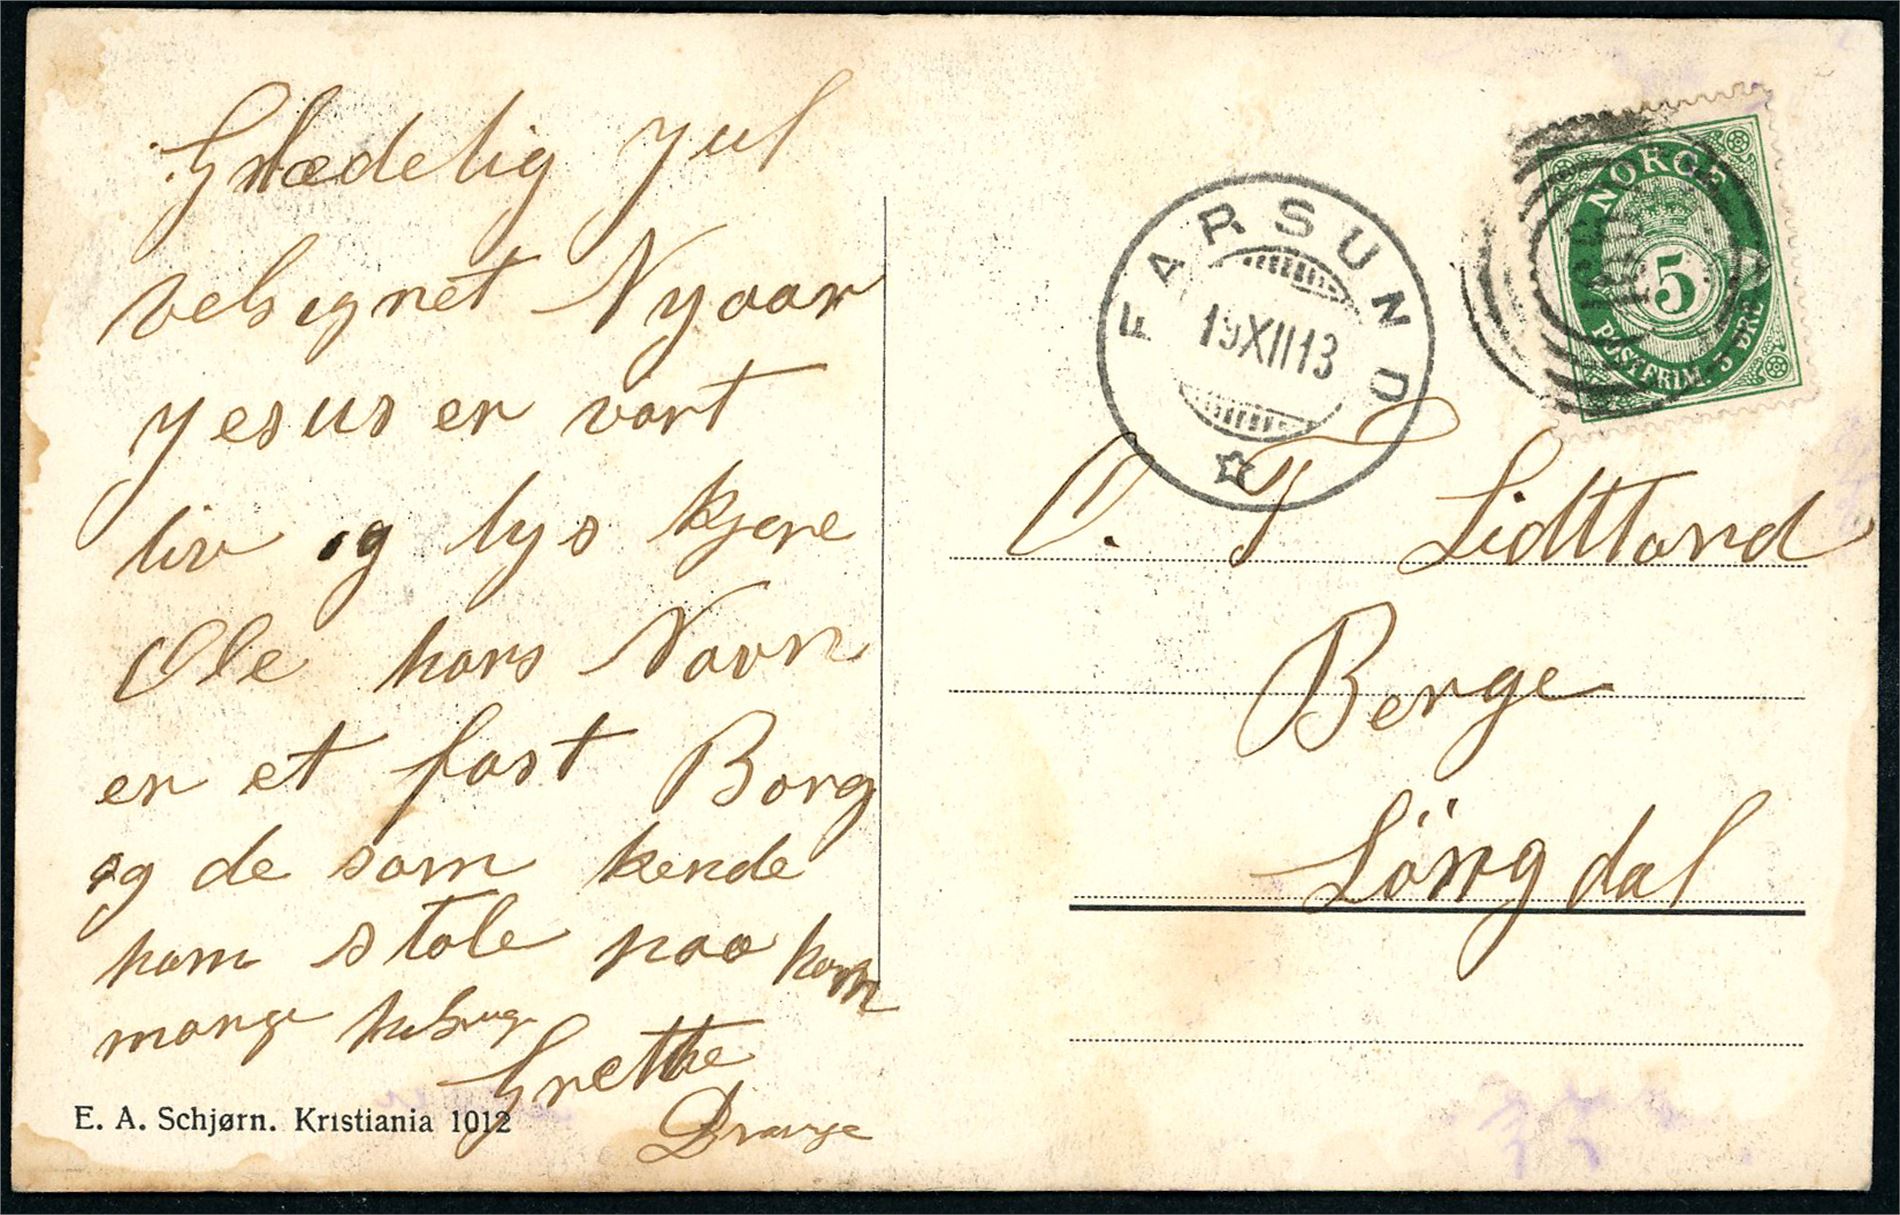 Glædelig Jul
velsignet Nyaar
Jesus er vort
liv og lys kjære
Ole hans Navn
er et fast Borg
og de som kende
ham stole paa ham
mange
Grethe
Drange
E. A. Schjørn. Kristiania 1012
FARSUND
19XII13
NORGE
5
POSTFRIM. 5 ØRE
O. T Lidtland
Berge
Löngdal